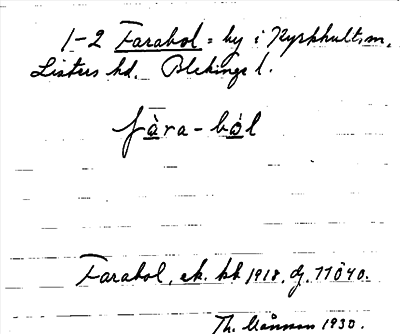 1-2 Farabol = by i Kyrkhults sn,
Listers hd. Blekinge l.
fàra-ból
Farabol, ek. kb 1918. dj. 11Ö40.
Th. Månsson 1930.